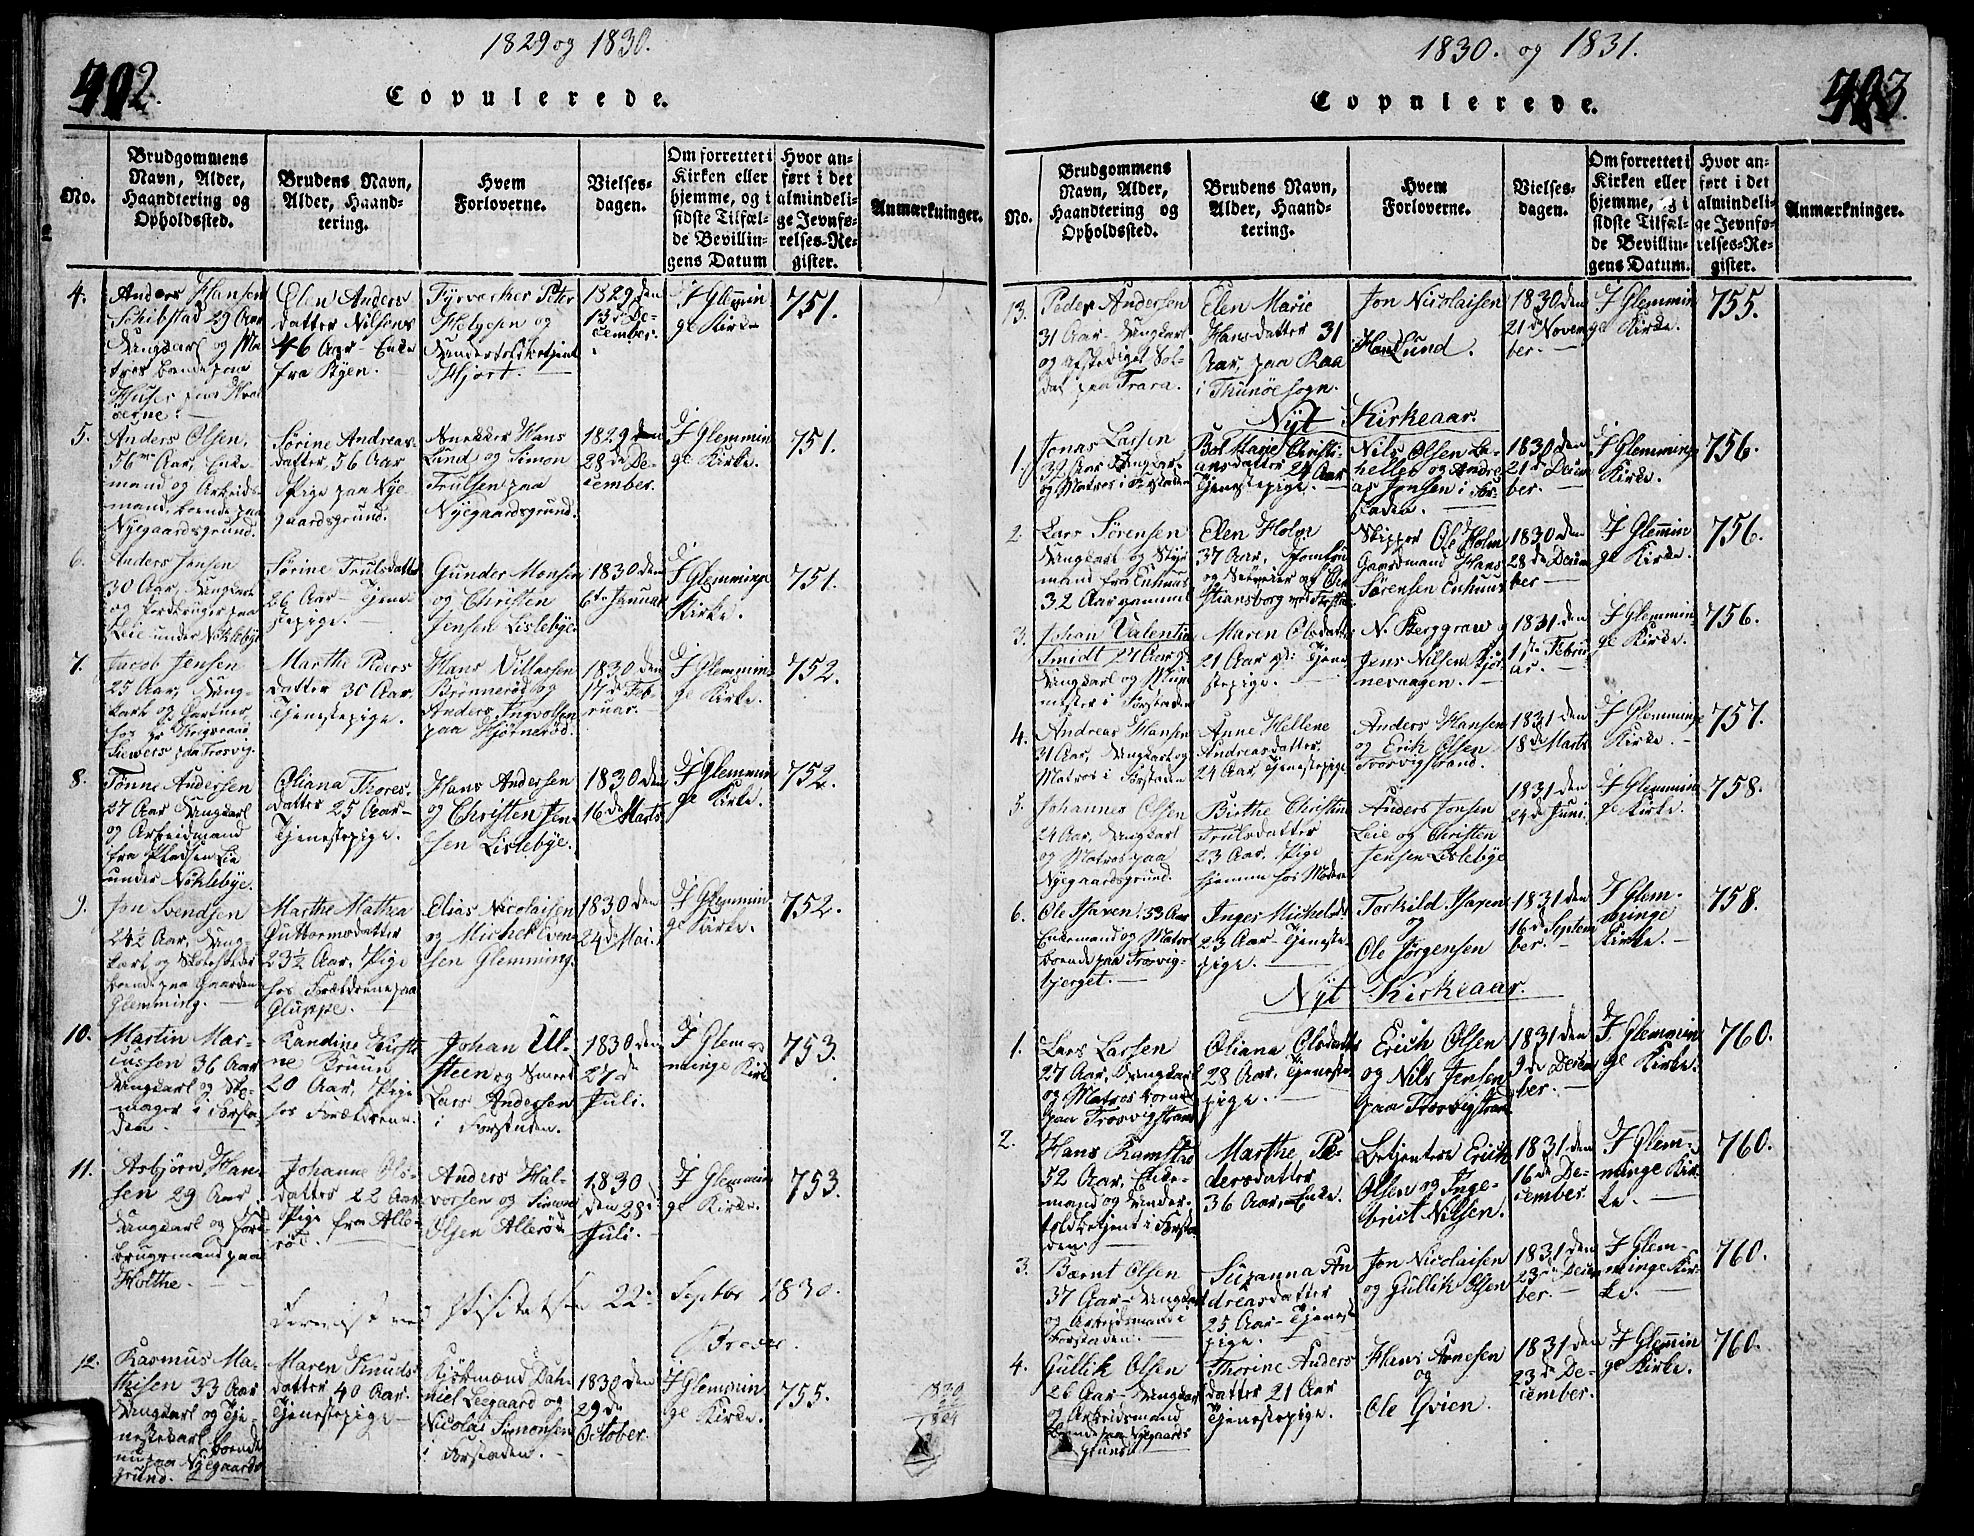 1829 og 1830.
402.
Copulerede.
No.
Brudgommens
Navn, Alder,
Haandtering og
Opholdssted.
Brudens Navn,
Alder, Haand-
tering.
Hvem
Forloverne.
Vielses-
dagen.
Om forrettet i
Kirken eller
hjemme, og i
sidste Tilfæl-
de Bevillin-
gens Datum
Hvor an-
ført i det
almindeli-
ge Jevnfø-
relses-Re-
gister.
Anmærkninger.
4.
Anders Hansen
Schibstad 29 Aar
Ungkarl og Ma
tros boende paa
Huser paa Hval
öerne.
Elen Anders
datter Nilsens
46 Aar - Enke
fra Byen.
Fyrverker Peter
Helgesen og
Undertoldbetjent
Hjort.
1829 den
13de De-
cember.
I Glemmin
ge Kirke
751.
5.
Anders Olsen,
56 Aar, Enke-
mand og Arbeids-
mand, boende paa
Nyegaardsgrund.
Sørine Andreas-
datter 56 Aar
Pige paa Nye-
gaardsgrund.
Anekker Hans
Lund og Simon
Trulsen paa
Nyegaardsgrund.
1829 den
28de De-
cember.
I Glemmin
ge Kirke.
751.
6.
Anders Jensen
30 Aar, Ungkarl
og Jordbruger paa
Leie under Noklebye
Sörine Trulsdatter
26 Aar - Tjene-
stepige.
Gunder Monsen
og Christen
Jensen Lislebye.
1830 den
6te Januar
I Glemminge
Kirke.
751.
7.
Jacob Jensen
25 Aar, Ung-
karl og Gartner
hos Hr Krigsraad
Siewers paa Trosvig.
Marthe Peers
datter 30 Aar,
Tjenestepige.
Hans Nillassen
Brönneröd og
Anders Ingvolsen
paa Hjörneröd.
1830 den
17de Feb-
ruar.
I Glemmin
ge Kirke.
752.
8.
Tönne Andersen
27 Aar Ungkarl
og Arbeidmand
fra Pladsen Lie
under Nöklebye.
Oliana Thores-
datter 25 Aar-
Tjenestepige.
Hans Andersen
og Christen Jen-
sen Lislebye.
1830 den
16de Marts
I Glemmin
ge Kirke.
752.
9.
Jon Svendsen
24½ Aar, Ung-
karl og
boende paa Gaarden
Glemming.
Marthe Mathea
Guttormsdatter
23½ Aar, Pige
hos Forældrene paa
Gluppe.
Elias Nicolaisen
og Michel Even
sen Glemming.
1830 den
24de Mai.
I Glemmin
ge Kirke.
752.
10.
Martin Mar-
cussen 36 Aar
Ungkarl og Sko-
mager i Forsta-
den.
Randine Kirsti-
ne Bruun
20 Aar, Pige
hos Forældrene.
Johan Ul-
steen og Smed
Lars Andersen
i Forstaden.
1830 den
27de
Juli.
I Glem-
minge Kirke
753.
11.
Asbjørn Han-
sen 29 Aar
Ungkarl og Jord
brugsmand paa
Holthe.
Johanne Ols-
datter 22 Aar
Pige fra Alle-
röd.
Anders Hal-
vorsen og Simon
Olsen Alleröd.
1830
den 28de
Juli.
I Glemmin
ge Kirke.
753.
ved Visitatsen 22de Septbr 1830.
12.
Rasmus Ma-
thisen 33 Aar
Ungkarl og Tje-
nestekarl boende
nu paa Nyegaards
grund.
Maren Knuds
datter 40 Aar
Tjenestepige
Kjöbmænd Dah-
niel Leegaard og
Nicolai Simonsen
i Forstaden.
1830 den
29de
October.
I Glemmin
ge Kirke.
755.
1830
1804
1830. og 1831.
403.
Copulerede.
No.
Brudgommens
Navn, Alder,
Haandtering og
Opholdssted.
Brudens Navn,
Alder, Haand-
tering.
Hvem
Forloverne.
Vielses-
dagen.
Om forrettet i
Kirken eller
hjemme, og i
sidste Tilfæl-
de Bevillin-
gens Datum.
Hvor an-
ført i det
almindeli-
ge Jevnfø-
relses-Re-
gister.
Anmærkninger.
13.
Peder Andersen
31 Aar Ungkarl
og afskediget Sol-
dat paa Trara.
Elen Marie
Hansdatter 31
Aar, paa Raa
i Thunöe sogn.
Jon Nicolaisen
Hans Lund.
1830 den
21de Novem
ber.
I Glemmin
ge Kirke.
755.
Nyt Kirkeaar.
1.
Jonas Larsen
32 Aar Ungkarl
og Matros i Forstaden
Bol Marie Christi-
ansdatter 24 Aar
Tjenestepige.
Nils Olsen La-
hellen og Andre
as Jonsen i For-
staden.
1830 den
21de Decem
ber.
I Glemminge
Kirke.
756.
2.
Lars Sörensen
Ungkarl og Styr
mand fra Enhuus
32 Aar gammel
Elen Holm
37 Aar, Jomfru
og
Skipper Ole Holm
Gaardmand Hans
Sörensen Enhuus
1830 den
28de Decem
ber
I Glemmin
ge Kirke.
756.
3.
Johan Valentin
Smidt 27 Aar gl:
Ungkarl og Mur
mester i Forstaden
Maren Olsdatter
21 Aar gl: Tjene
stepige.
N. Berggraw og
Jens Nilsen Kjör
nevaagen.
1831 den
1ste Febru
ar.
I Glemmin
ge Kirke.
756.
4.
Andreas Hansen
31 Aar, Ungkarl og
Matros i Forstaden
Anne Hellene
Andreasdatter
24 Aar, Tjenestepige.
Anders Hansen
og Erik Olsen
Trosvigstrand.
1831 den
18de Marts
I Glemminge
Kirke.
757.
5.
Johannes Olsen
24 Aar, Ungkarl
og Matros paa
Nyegaardsgrund.
Birthe Christine
Trulsdatter
23 Aar, Pige
hjemme hos Modren
Anders Jensen
Leie og Christen
Jensen Lislebye
1831 den
24de Juni.
I Glemmin
ge Kirke.
758.
6.
Ole Iffaren 53 Aar
Enkemand og Matros
boende paa Trosvig-
bjerget.
Inger Michelsdr
23 Aar - Tjeneste-
pige.
Torkild
og
Ole Jörgensen
1831 den
16de Septem
ber.
I Glem-
minge
Kirke.
758.
Nyt Kirkeaar.
1.
Lars Larsen
27 Aar, Ungkarl
og Matros boende
paa Trosvigstrand
Oliana Olsdatter
28 Aar, Tjeneste
pige.
Erich Olsen
og Nils Jensen
paa Trosvigstrand.
1831 den
9de Decem
ber.
I Glemmin
ge Kirke.
760.
2.
Hans Ramstad
52 Aar, Enke-
mand og Under-
toldbetjent i Forsta
den.
Marthe Pe-
dersdatter
36 Aar, Enke.
Betjentere Erich
Olsen og Inge-
brict Nilsen.
1831 den
16de De-
cember.
I Glem-
minge Kir-
ke.
760.
3.
Bærnt Olsen
37 Aar - Ungkarl
og Arbejdsmand i
Forstaden.
Suzanna An
dreasdatter
25 Aar - Tjeneste
pige.
Jon Nicolaisen
og Gullik Olsen
1831 den
23de Decem
ber.
I Glem-
minge Kir-
ke.
760.
4.
Gullik Olsen
26 Aar - Ungkarl
og Arbeidsmand
boende paa Nyegaards
grund.
Thorine Anders
datter 21 Aar
Tjenestepige.
Hans Arnesen
og
Ole Qvien.
1831 den
23de De-
cember.
I Glemmin
ge Kirke.
760.